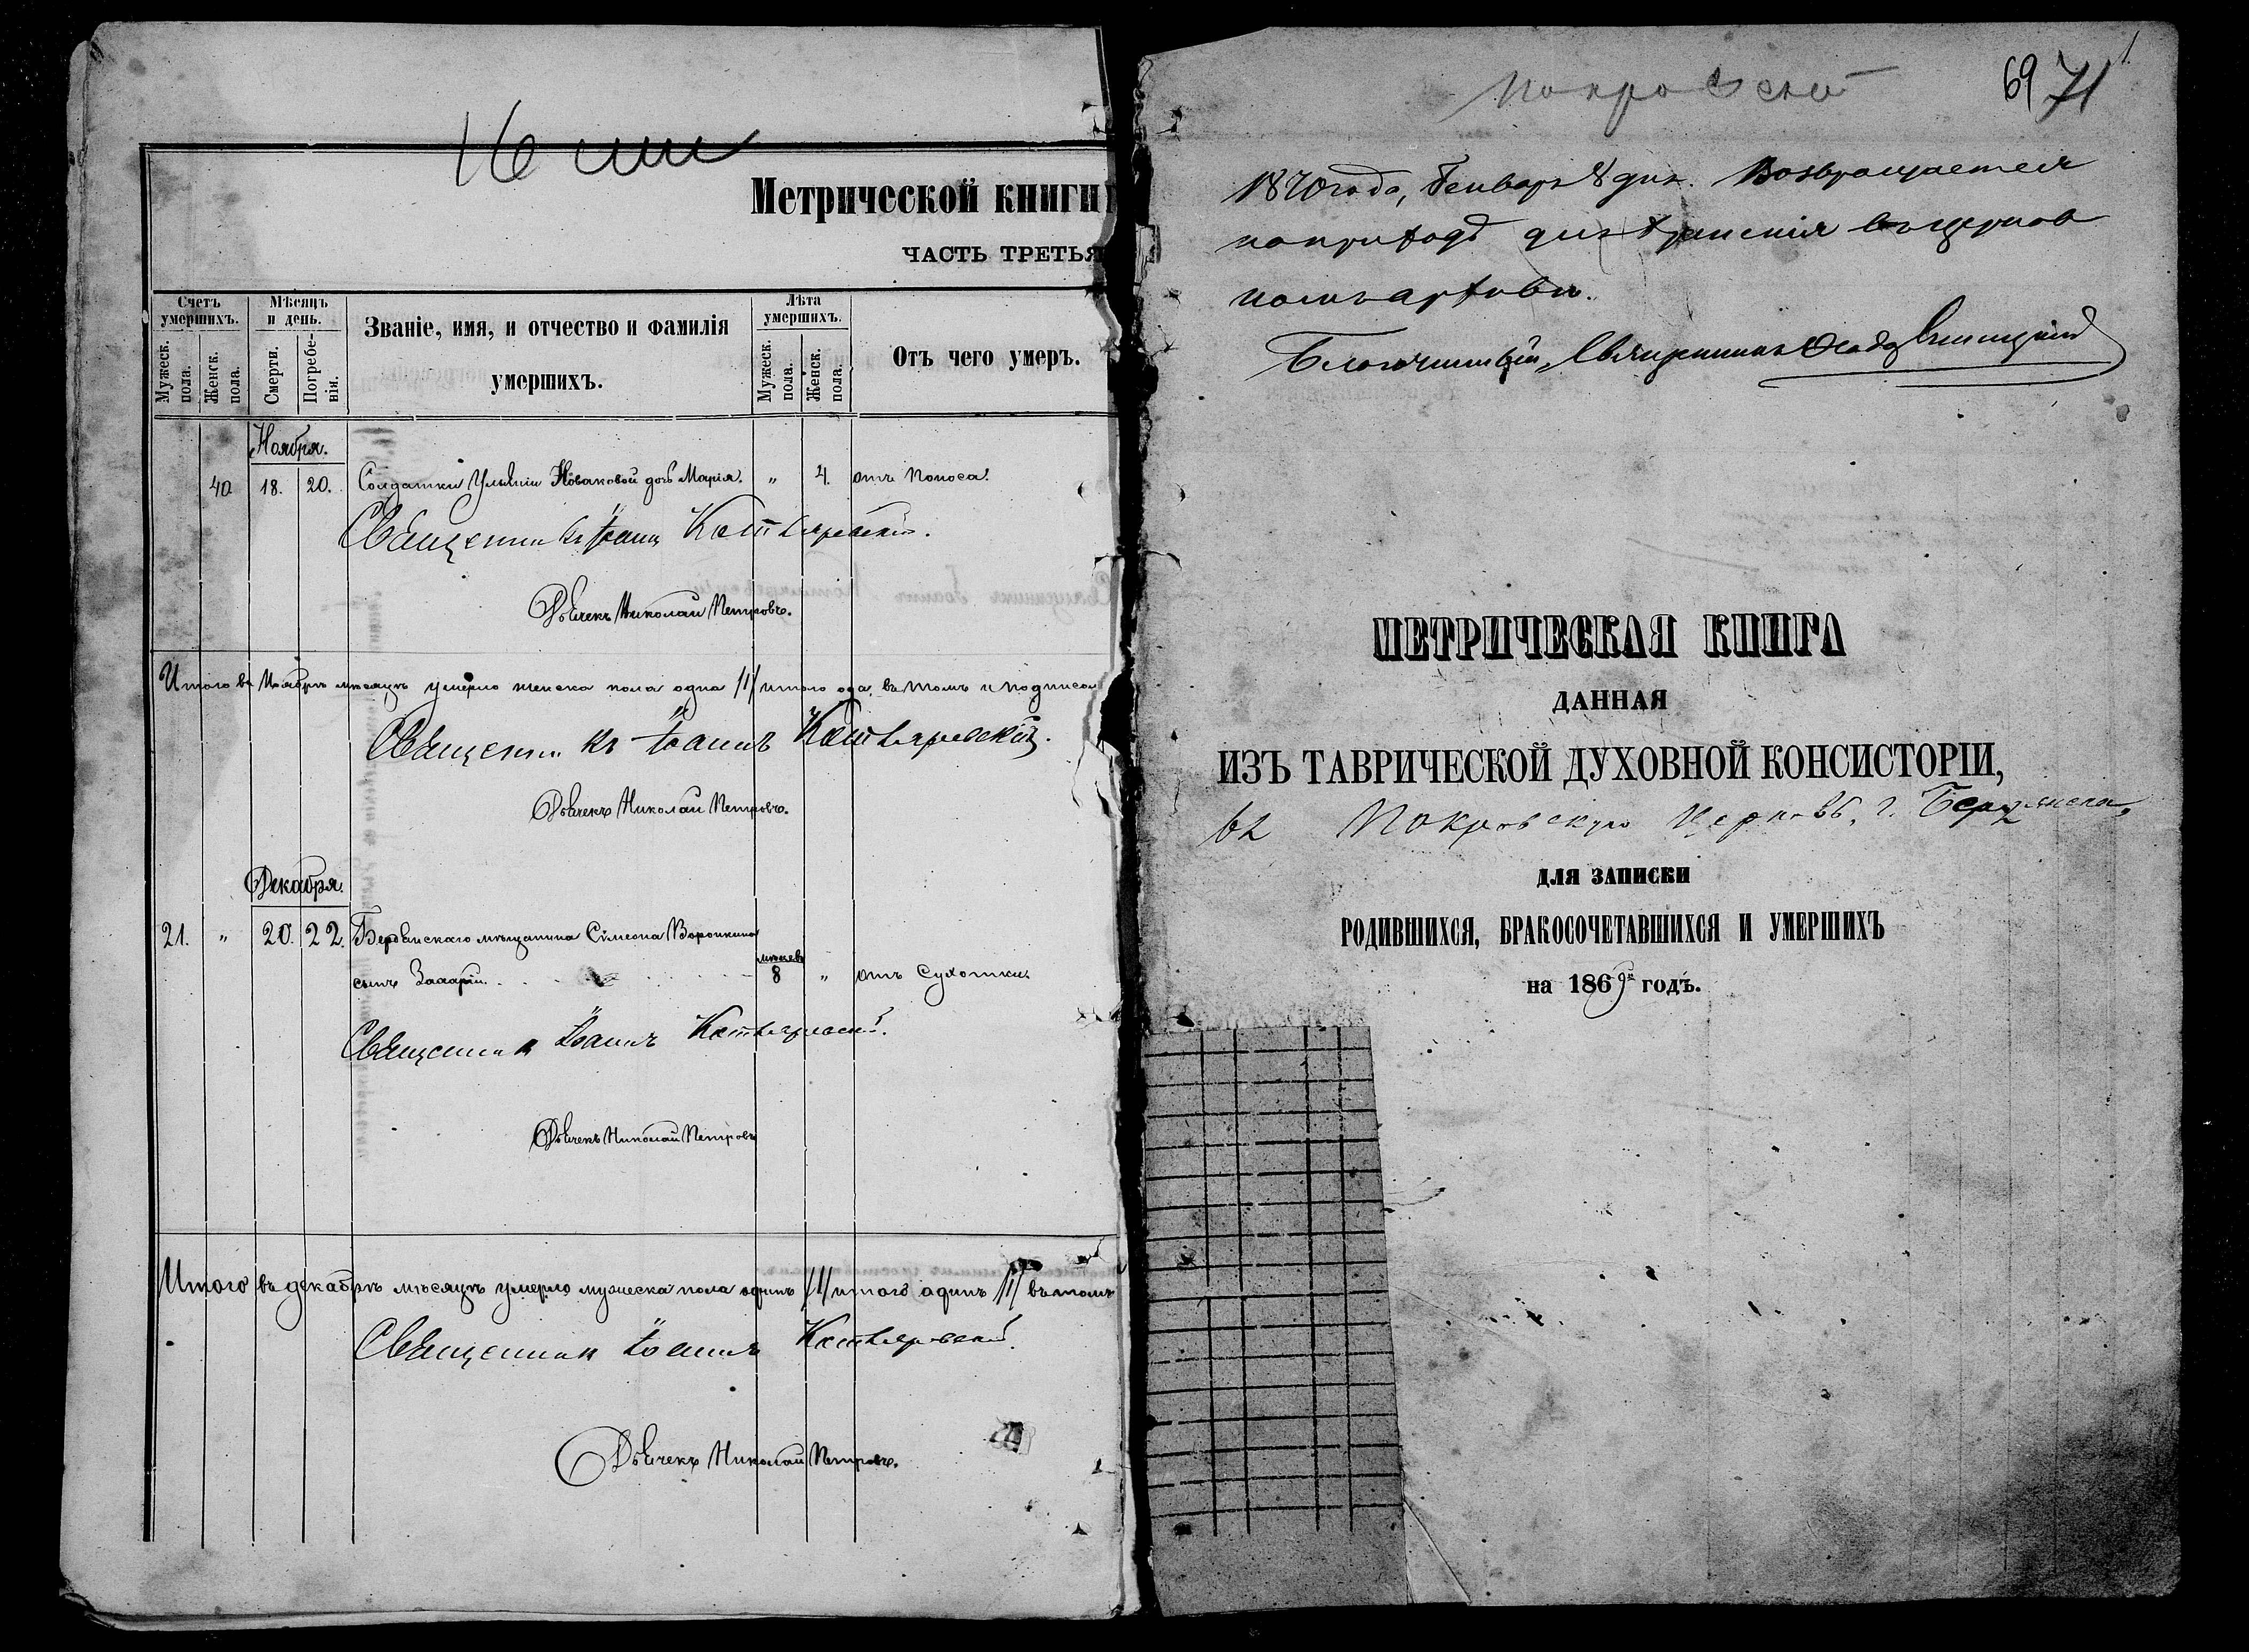 Метрической книги
ЧАСТЬ ТРЕТЬЯ
Счетъ умершихъ.
Мѣсяцъ и день.
Званіе, имя, и отчество и фамилія умершихъ.
Лѣта умершихъ.
Отъ чего умеръ.
Мужеск. пола.
Женск. пола.
Смерти.
Погребенія.
Мужеск. пола.
Женск. пола.
Ноября.
40 18. 20. Солдатки Ульяніи Новаковой дочь Марія. „ 4. отъ поноса.
Священникъ Іоаннъ Котляревскій.
Дьячекъ Николай Петровъ.
Итого въ Ноябрѣ мѣсяцѣ умерло женска пола одна /1/ итого одна, въ томъ и подписа
Священникъ Іоаннъ Котляревскій.
Дьячекъ Николай Петровъ.
Декабря.
21. „ 20. 22. Бердянскаго мѣщанина Симеона Воронкина
сынъ Захарій. 8 „ отъ Сухотки
Священникъ Іоаннъ Котляревскій.
Дьячекъ Николай Петровъ
Итого въ декабрѣ мѣсяцѣ умерло мужеска пола одинъ /1/ итого одинъ /1/ въ томъ
Священникъ Іоаннъ Котляревскій.
Дьячекъ Николай Петровъ.
Покровской
69 71
1870 года, Января 8 дня. Возвращается
по приходѣ для храненія въ церков
номъ архивѣ.
Благочинный, Священникъ
МЕТРИЧЕСКАЯ КНИГА
ДАННАЯ
ИЗЪ ТАВРИЧЕСКОЙ ДУХОВНОЙ КОНСИСТОРІИ,
въ Покровскую Церковь, г. Бердянска,
ДЛЯ ЗАПИСКИ
РОДИВШИХСЯ, БРАКОСОЧЕТАВШИХСЯ И УМЕРШИХЪ
на 1869й годъ.